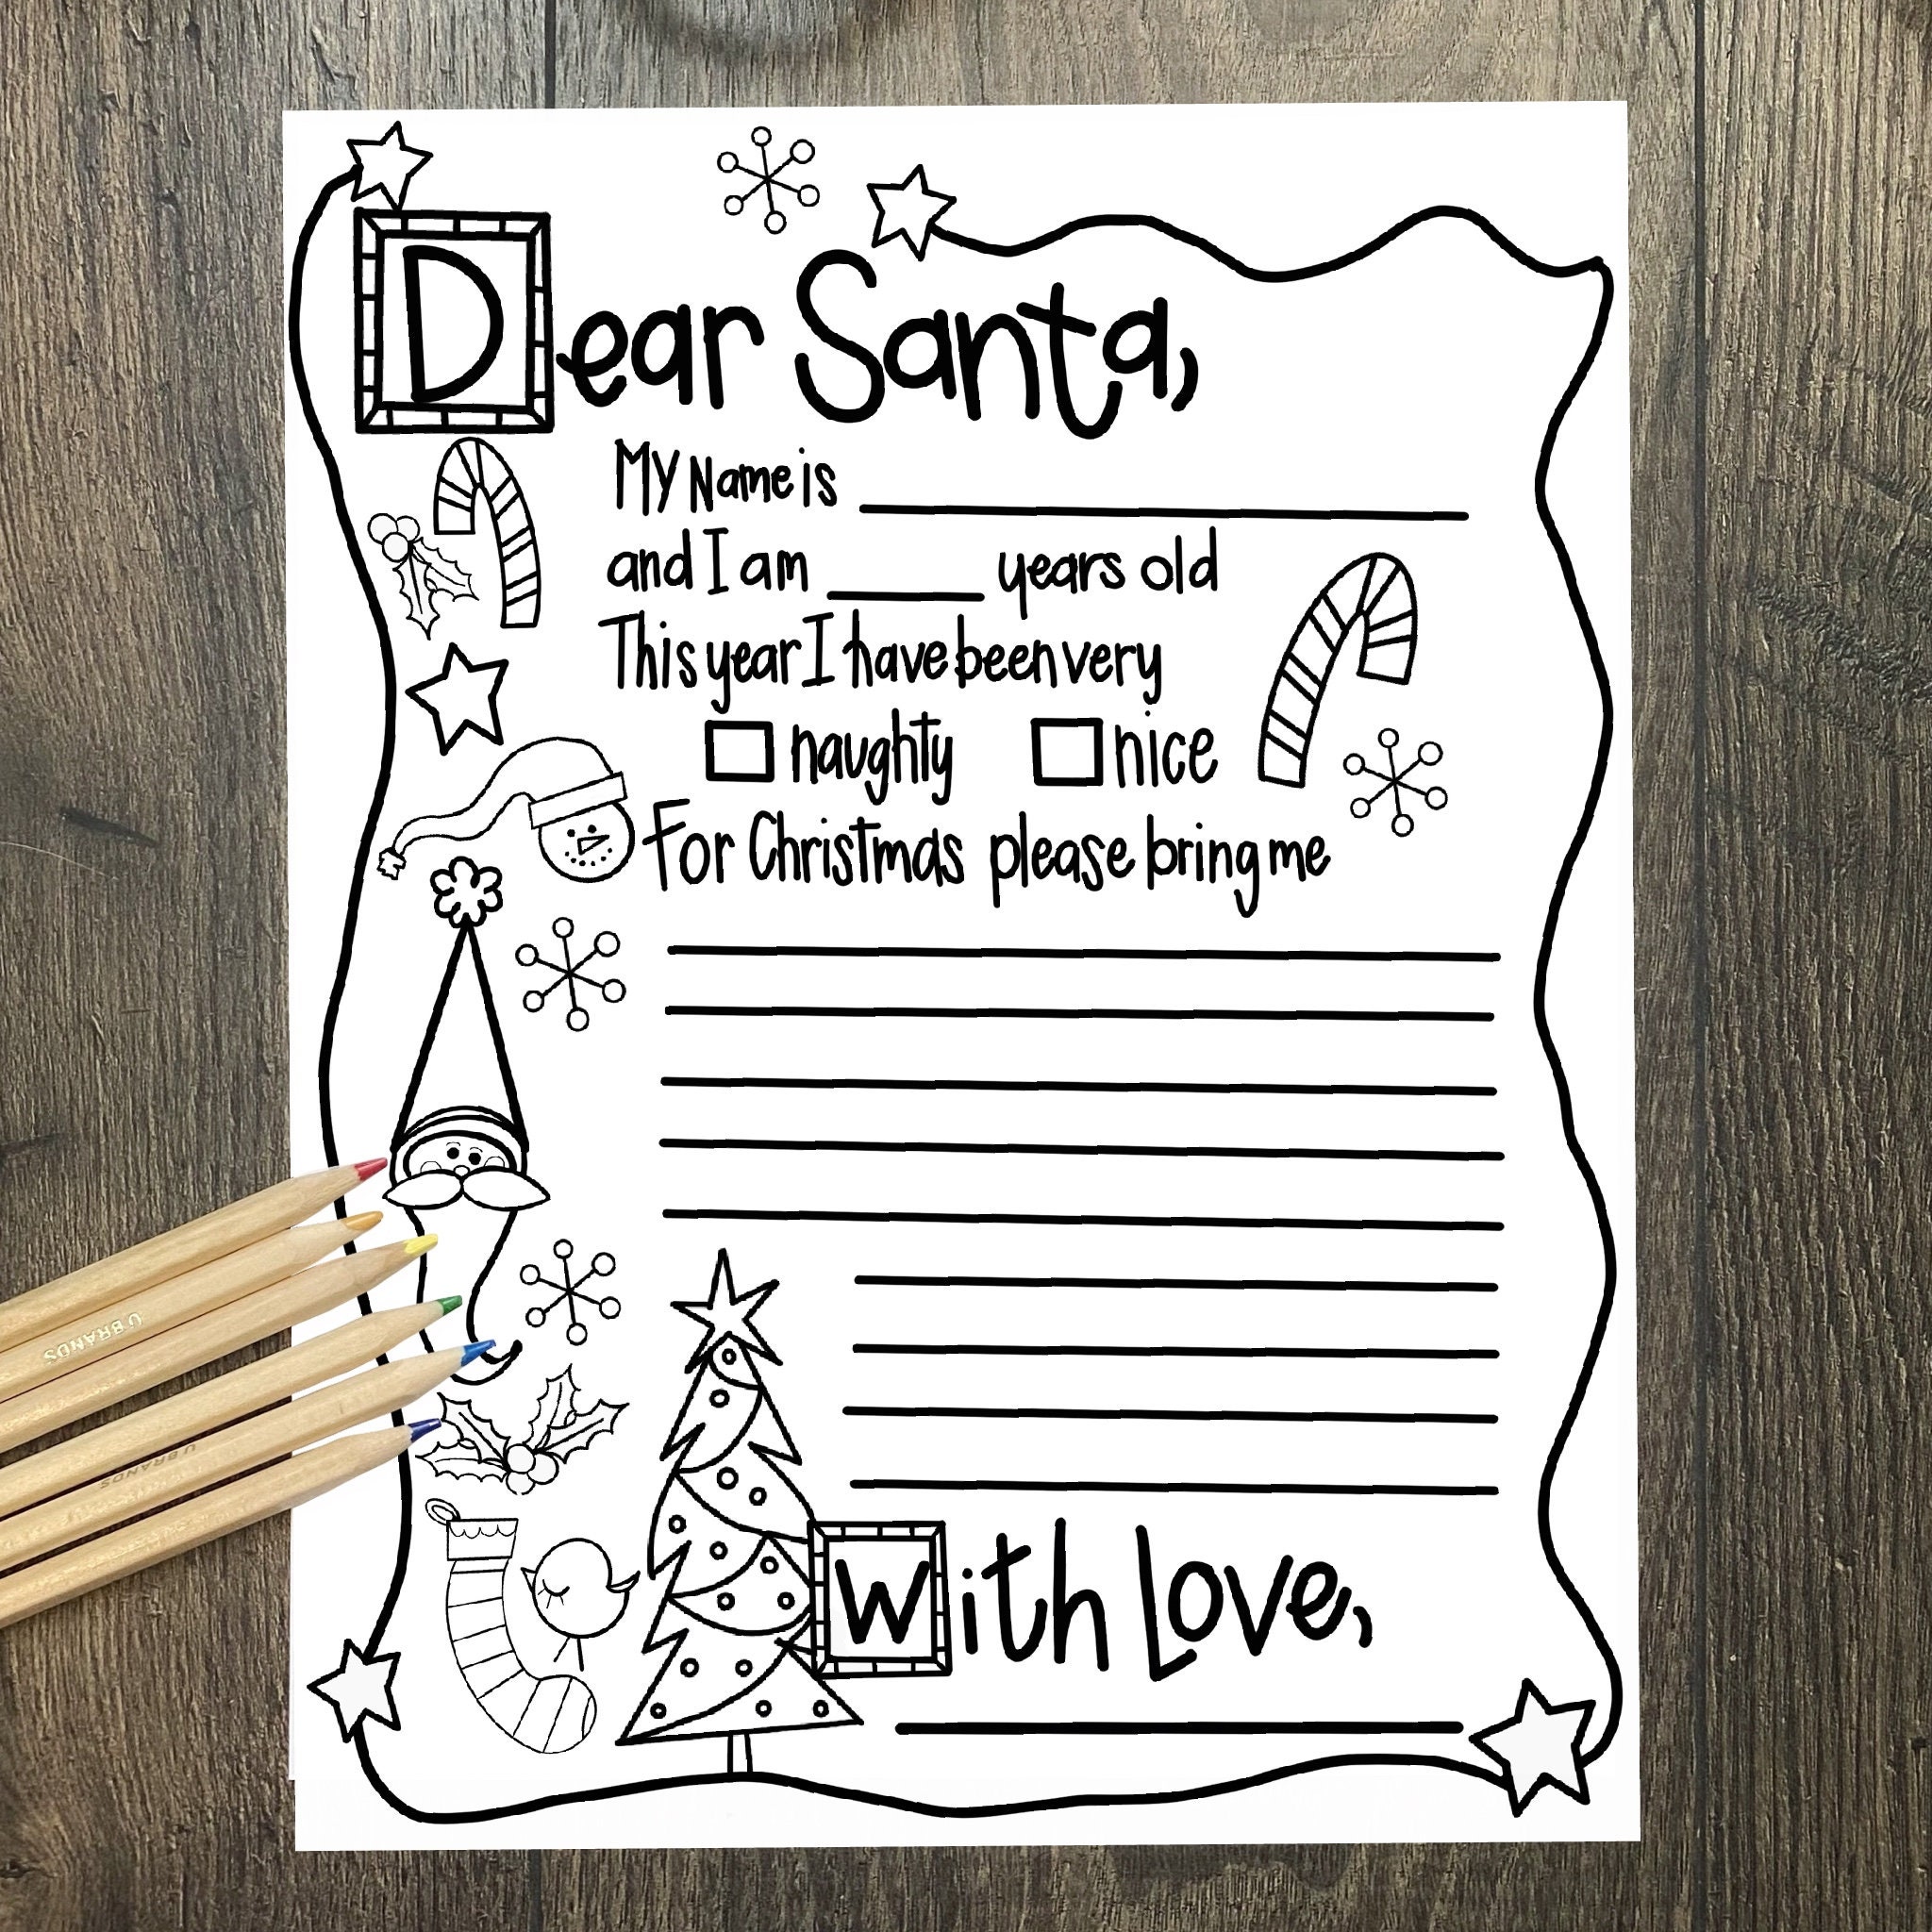 Dear Santa,
My Name is
and I am years old
This year I have been very
naughty nice
For Christmas please bring me
With Love,
U BRANDS
U BRANDS